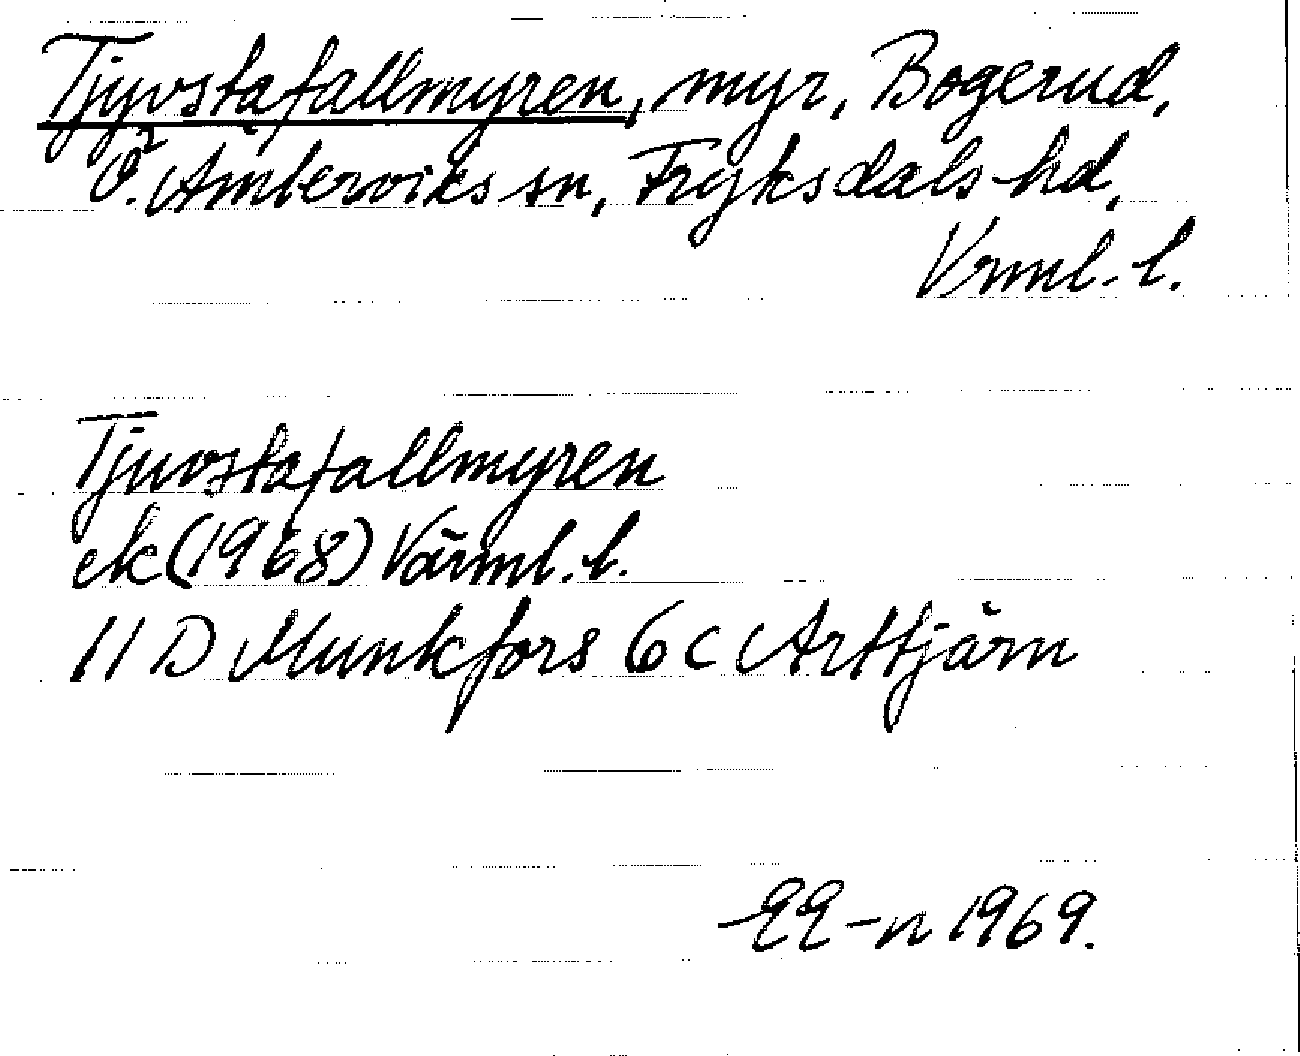 Tjyvstafallmyren, myr, Bogerud,
Ö. Ämterviks sn, Fryksdals hd,
Vrml. l.
Tjuvstafallmyren
ek (1968) Värml. l.
11 D Munkfors 6 c Arttjärn
EE-n 1969.